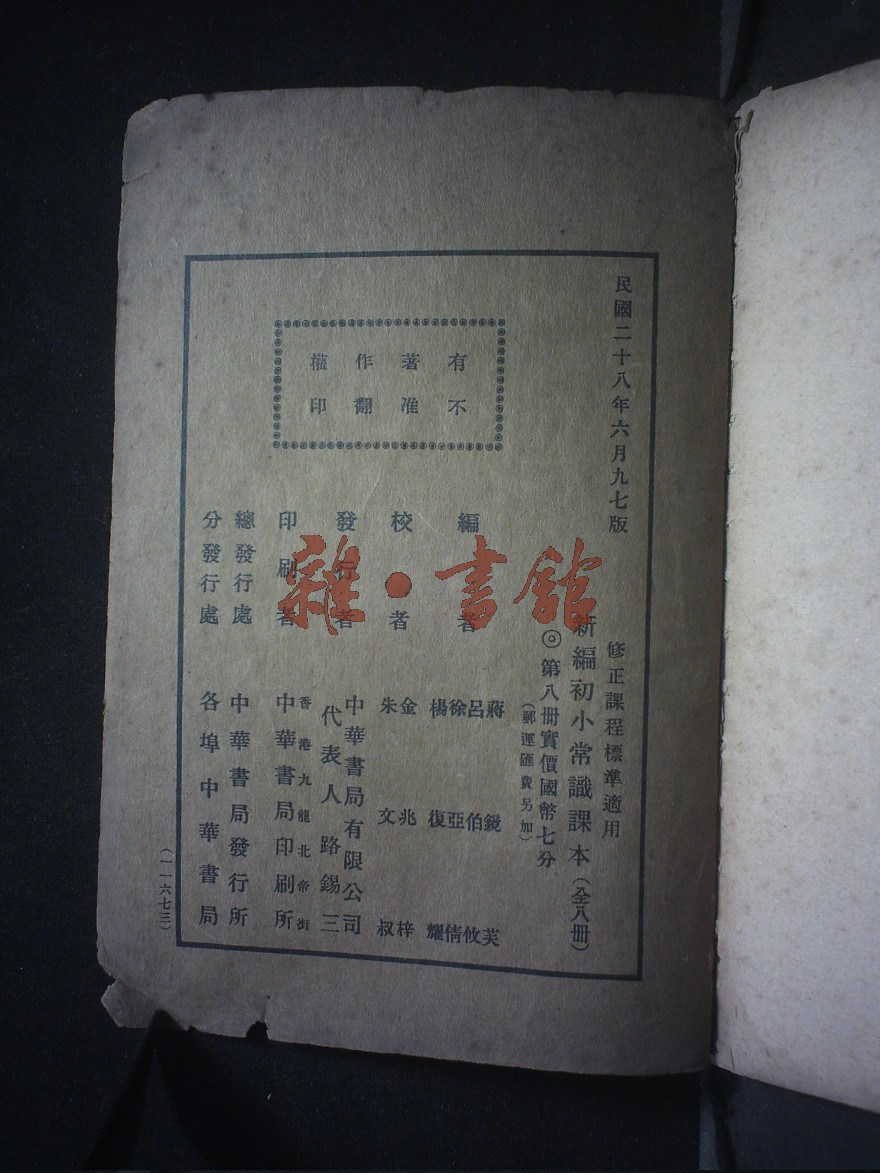 民國二十八年六月九七版
修正課程標準適用
新編初小常識課本（全八冊）
◎第八冊實價國幣七分
（郵運匯費另加）
有著作權
不准翻印
編者
蔣鏡芙
呂伯攸
徐亞倩
楊復耀
校者
金兆梓
朱文叔
發行者
中華書局有限公司
代表人路錫三
印刷者
香港九龍北帝街
中華書局印刷所
總發行處
中華書局發行所
分發行處
各埠中華書局
（一一六七三）
雜·書館